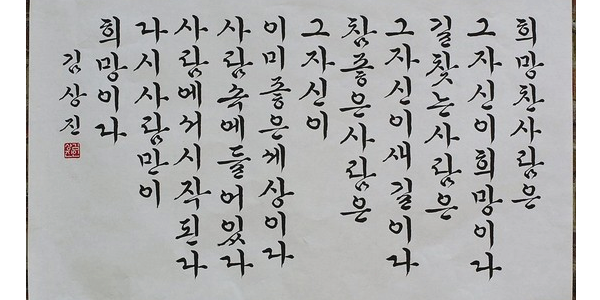 희망찬사람은
그자신이희망이다
길찾는사람은
그자신이새길이다
참좋은사람은
그자신이
이미좋은세상이다
사람속에들어있다
사람에서시작된다
다시사람만이
희망이다
김상진